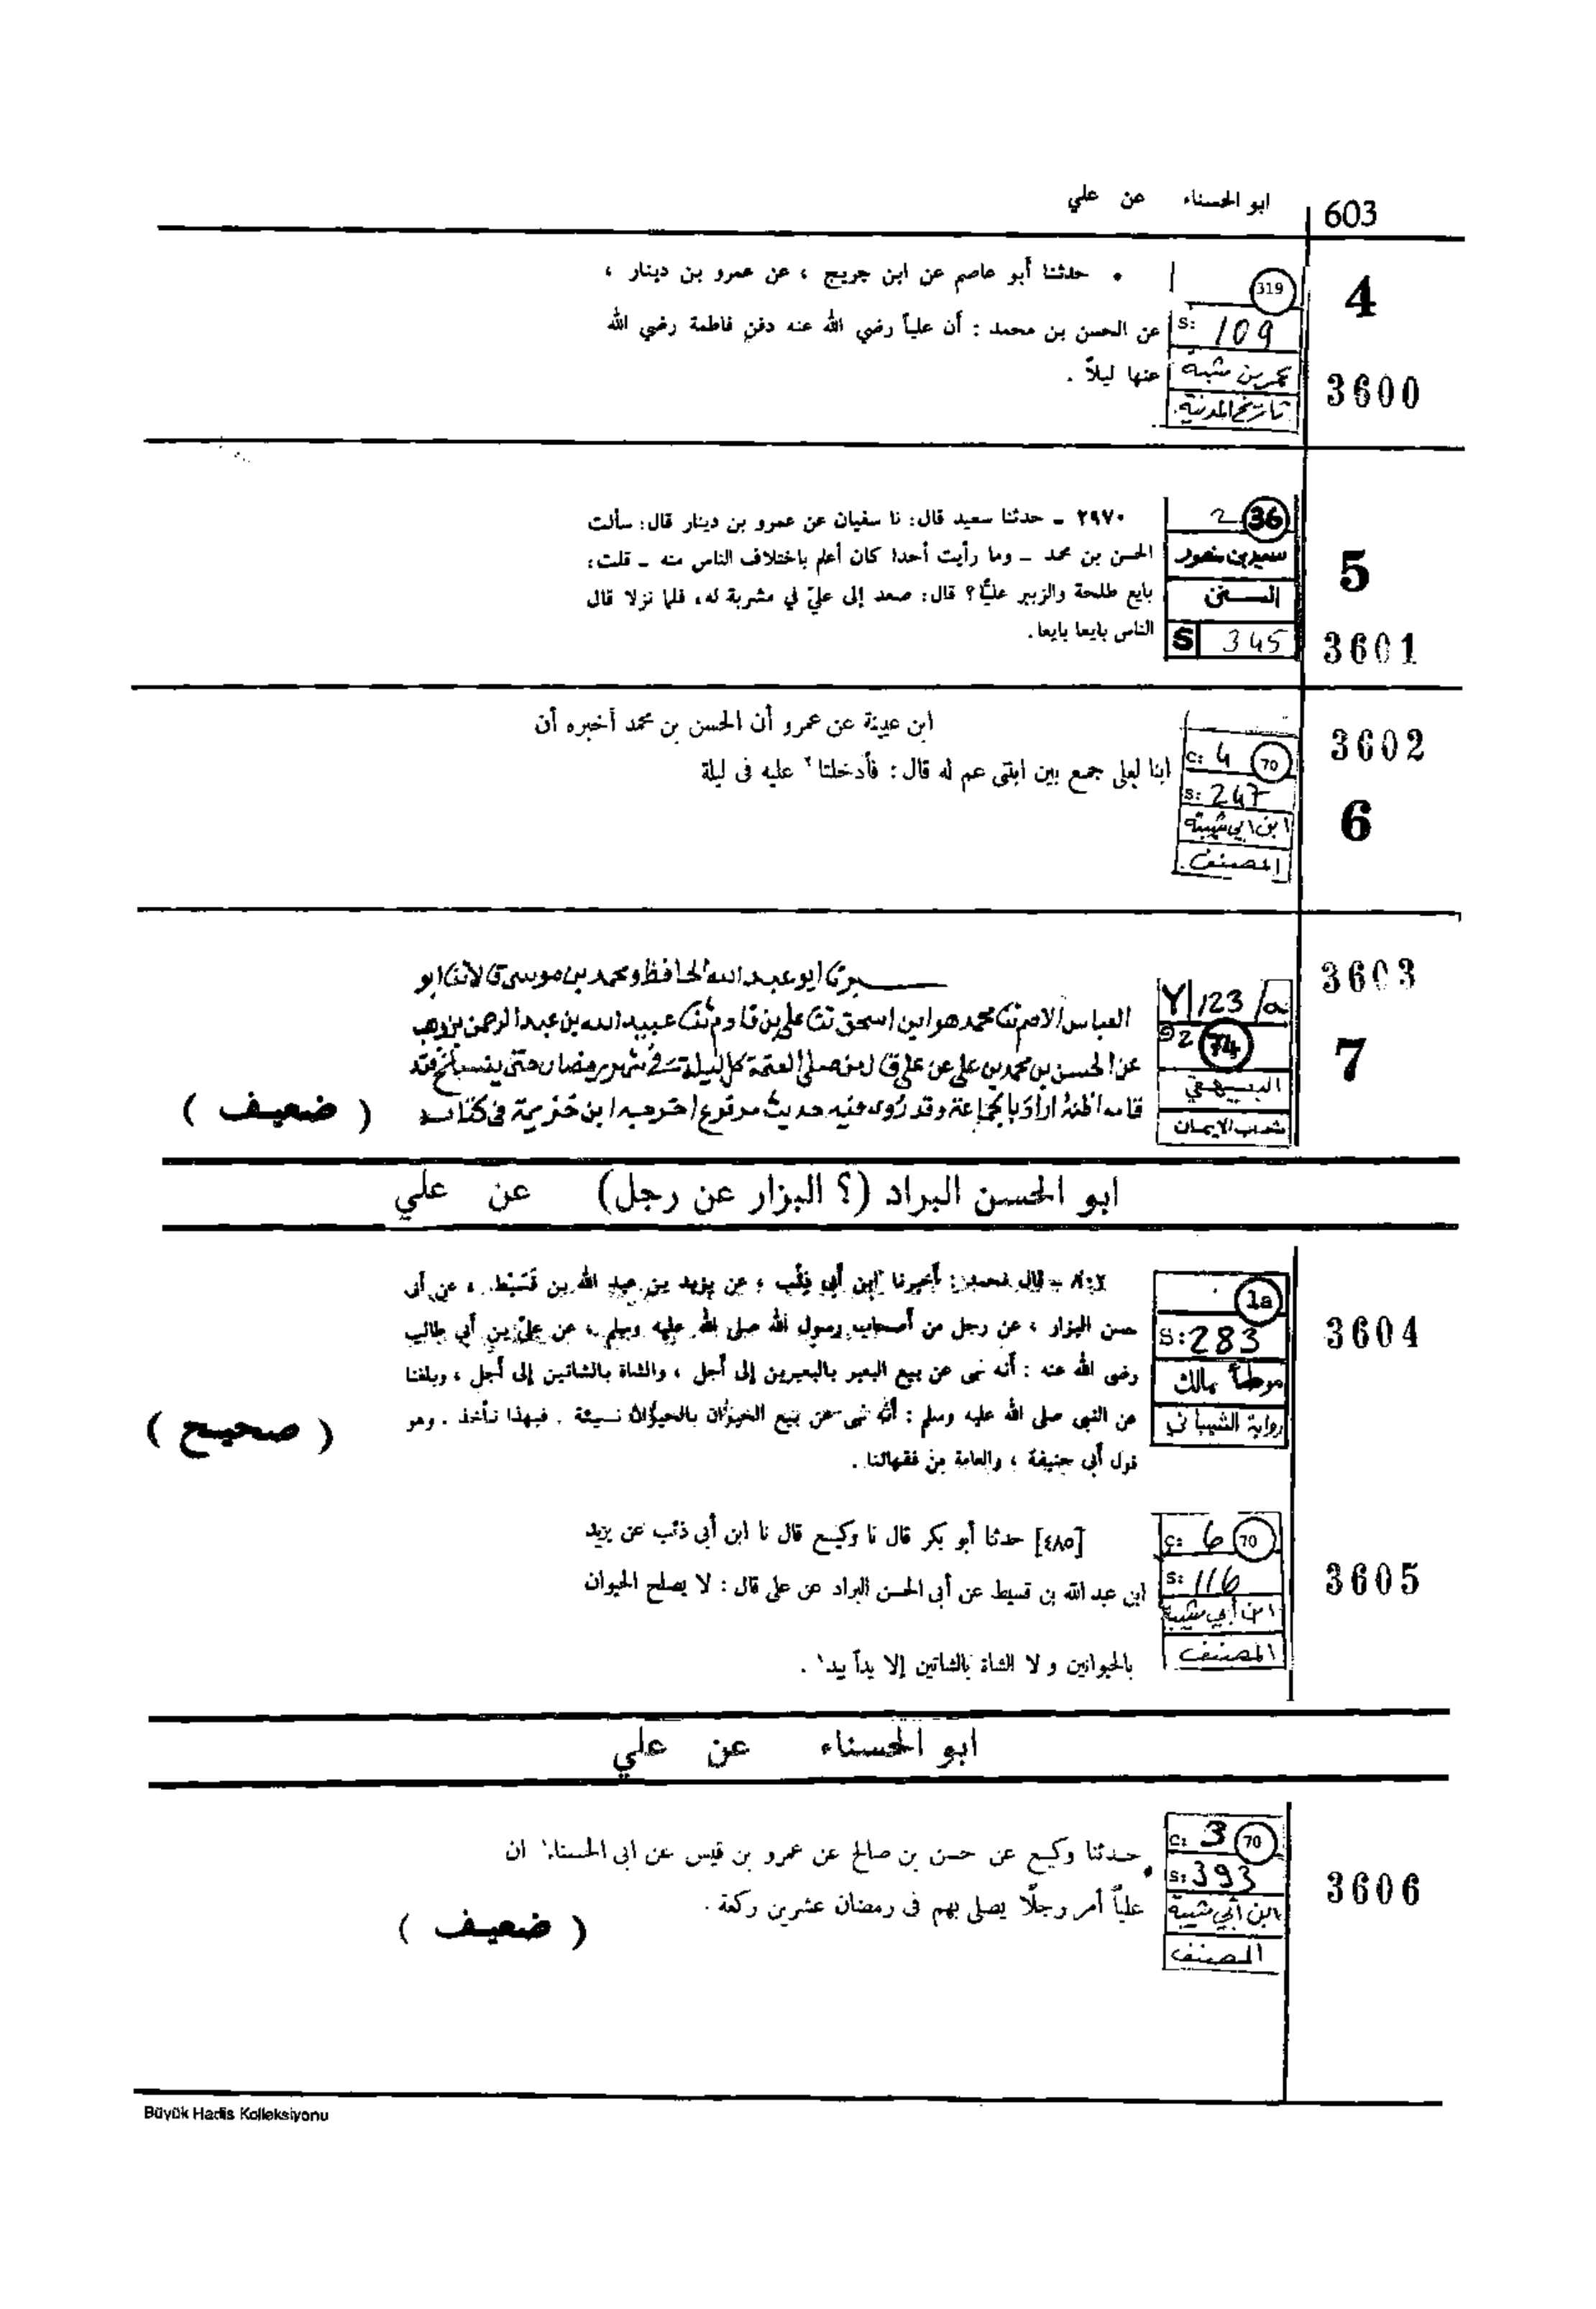 603
ابو الحسناء عن علي
4
3600
319
S: 109
عمر بن شبة
تاريخ المدينة
• حدثنا أبو عاصم عن ابن جريج ، عن عمرو بن دينار ،
عن الحسن بن محمد : أن علياً رضي الله عنه دفن فاطمة رضي الله
عنها ليلاً .
5
3601
2 36
سعيد بن منصور
السنن
S 345
٢٩٧٠ ـ حدثنا سعيد قال: نا سفيان عن عمرو بن دينار قال: سألت
الحسن بن محمد ـ وما رأيت أحدا كان أعلم باختلاف الناس منه ـ قلت:
بايع طلحة والزبير عليًّا؟ قال: صعد إلى عليّ في مشربة له، فلما نزلا قال
الناس بايعا بايعا.
3602
6
C: 4 70
S: 247
ابن ابي شيبة
المصنف
ابن عيينة عن عمرو أن الحسن بن محمد أخبره أن
ابنا لعلى جمع بين ابنتى عم له قال : فأدخلتا عليه فى ليلة
3603
7
Y 123/a
92 74
البيهقي
شعب الايمان
ابو عبد الله الحافظ ومحمد بن موسى قالا ثنا ابو
العباس الاصم ثنا محمد هو ابن اسحق ثنا علي بن قادم ثنا عبيد الله بن عبد الرحمن بن وهب
عن الحسن بن محمد بن علي عن علي قال من صلى العتمة كل ليلة في شهر رمضان حتى ينسلخ فقد
قامه اظنه اراد بالجماعة وقد روى فيه حديث مرفوع اخرجه ابن خزيمة في كتابه
( ضعيف )
ابو الحسن البراد (؟ البزار عن رجل) عن علي
3604
1a
S: 283
موطأ مالك
رواية الشيباني
قال محمد : أخبرنا ابن أبي ذئب ، عن يزيد بن عبد الله بن قسيط ، عن أبى
حسن البزار ، عن رجل من أصحاب رسول الله صلى الله عليه وسلم ، عن علىّ بن أبي طالب
رضى الله عنه : أنه نهى عن بيع البعير بالبعيرين إلى أجل ، والشاة بالشاتين إلى أجل ، وبلغنا
عن النبى صلى الله عليه وسلم : أنه نهى عن بيع الحيوان بالحيوان نسيئة . فبهذا نأخذ . وهو
قول أبى حنيفة ، والعامة من فقهائنا .
( صحيح )
3605
C: 6 70
S: 116
ابن أبي شيبة
المصنف
[٤٨٥] حدثنا أبو بكر قال نا وكيع قال نا ابن أبى ذئب عن يزيد
ابن عبد الله بن قسيط عن أبى الحسن البراد عن على قال : لا يصلح الحيوان
بالحيوانين و لا الشاة بالشاتين إلا يدآ بيد١ .
ابو الحسناء عن علي
3606
C: 3 70
S: 393
ابن أبي شيبة
المصنف
حدثنا وكيع عن حسن بن صالح عن عمرو بن قيس عن ابى الحسناء ان
علياً أمر رجلًا يصلى بهم فى رمضان عشرين ركعة .
( ضعيف )
Büyük Hadis Kolleksiyonu